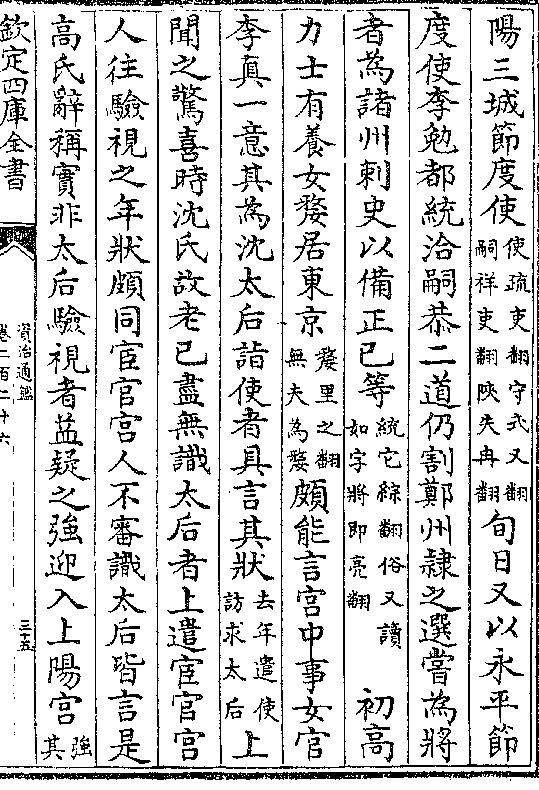 陽三城節度使使疏吏翻守式又翻嗣祥吏翻陜失冉翻旬日又以永平節
度使李勉都統洽嗣恭二道仍割鄭州隷之選嘗為將
者為諸州刺史以備正已等統它綜翻俗又讀如字將即亮翻 初高
力士有養女嫠居東京嫠里之翻無夫為嫠頗能言宫中事女官
李真一意其為沈太后詣使者具言其狀去年遣使訪求太后上
聞之驚喜時沈氏故老已盡無識太后者上遣宦官宫
人往驗視之年狀頗同宦官宫人不審識太后皆言是
高氏辭稱實非太后驗視者益疑之強迎入上陽宫強其
欽定四庫全書
資治通鑑
卷二百二十六
三十五